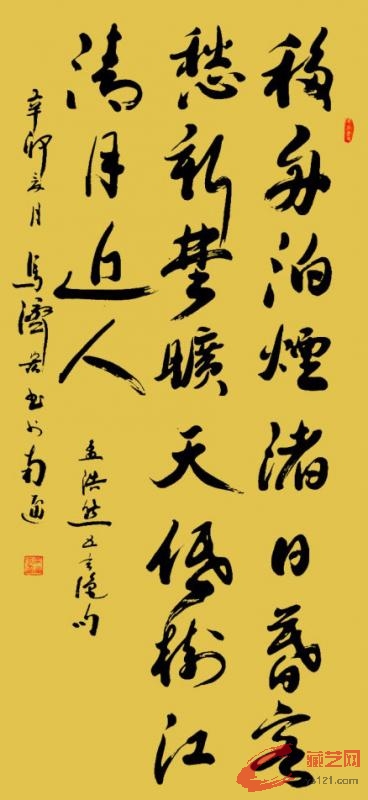 移舟泊煙渚日暮客
愁新埜曠天低樹江
清月近人
孟浩然五言絶句
辛卯月馬濟书於南通
藏艺网
s121.com